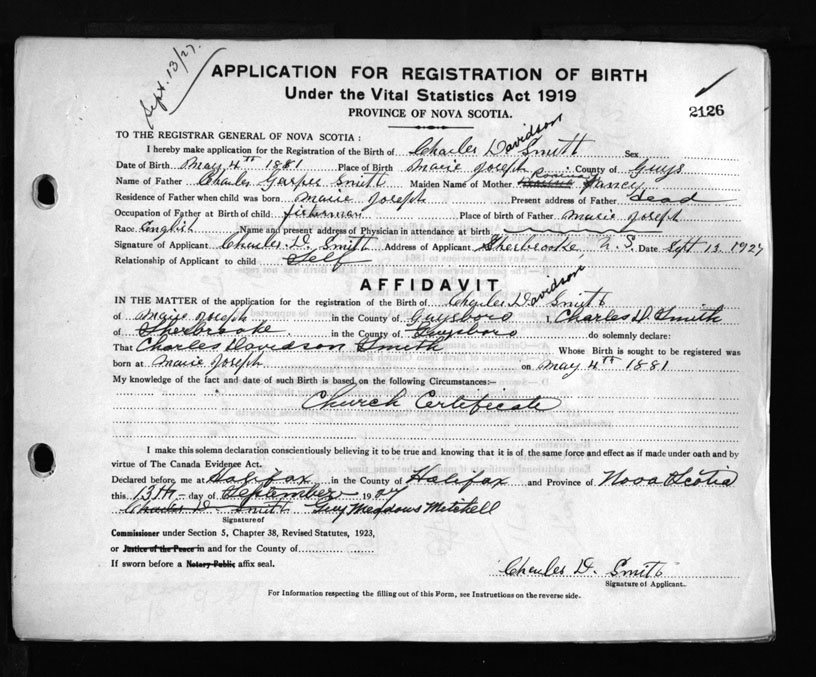 Sept. 13/27.
APPLICATION FOR REGISTRATION OF BIRTH
Under the Vital Statistics Act 1919
PROVINCE OF NOVA SCOTIA.
2126
TO THE REGISTRAR GENERAL OF NOVA SCOTIA:
I hereby make application for the Registration of the Birth of Charles Davidson Smith Sex
Date of Birth May 4th 1881 Place of Birth Marie Joseph County of Guys
Name of Father Charles Gasper Smith Maiden Name of Mother Nancy
Residence of Father when child was born Marie Joseph Present address of Father dead
Occupation of Father at Birth of child fisherman Place of Birth of Father Marie Joseph
Race English Name and present address of Physician in attendance at birth
Signature of Applicant Charles D. Smith Address of Applicant Sherbrooke, N.S. Date Sept 13 1927
Relationship of Applicant to child Self
AFFIDAVIT
IN THE MATTER of the application for the registration of the Birth of Charles Davidson Smith
of Marie Joseph in the County of Guysboro, Charles D. Smith
of Sherbrooke in the County of Guysboro do solemnly declare:
That Charles Davidson Smith Whose Birth is sought to be registered was
born at Marie Joseph on May 4th 1881
My knowledge of the fact and date of such Birth is based on the following Circumstances:—
Church Certificate
I make this solemn declaration conscientiously believing it to be true and knowing that it is of the same force and effect as if made under oath and by
virtue of The Canada Evidence Act.
Declared before me at Halifax in the County of Halifax and Province of Nova Scotia
this 13th day of September 1927
Charles D. Smith Guy Meadows Mitchell
Signature of
Commissioner under Section 5, Chapter 38, Revised Statutes, 1923,
or Justice of the Peace in and for the County of
If sworn before a Notary Public affix seal.
Charles D. Smith
Signature of Applicant.
For Information respecting the filling out of this Form, see Instructions on the reverse side.